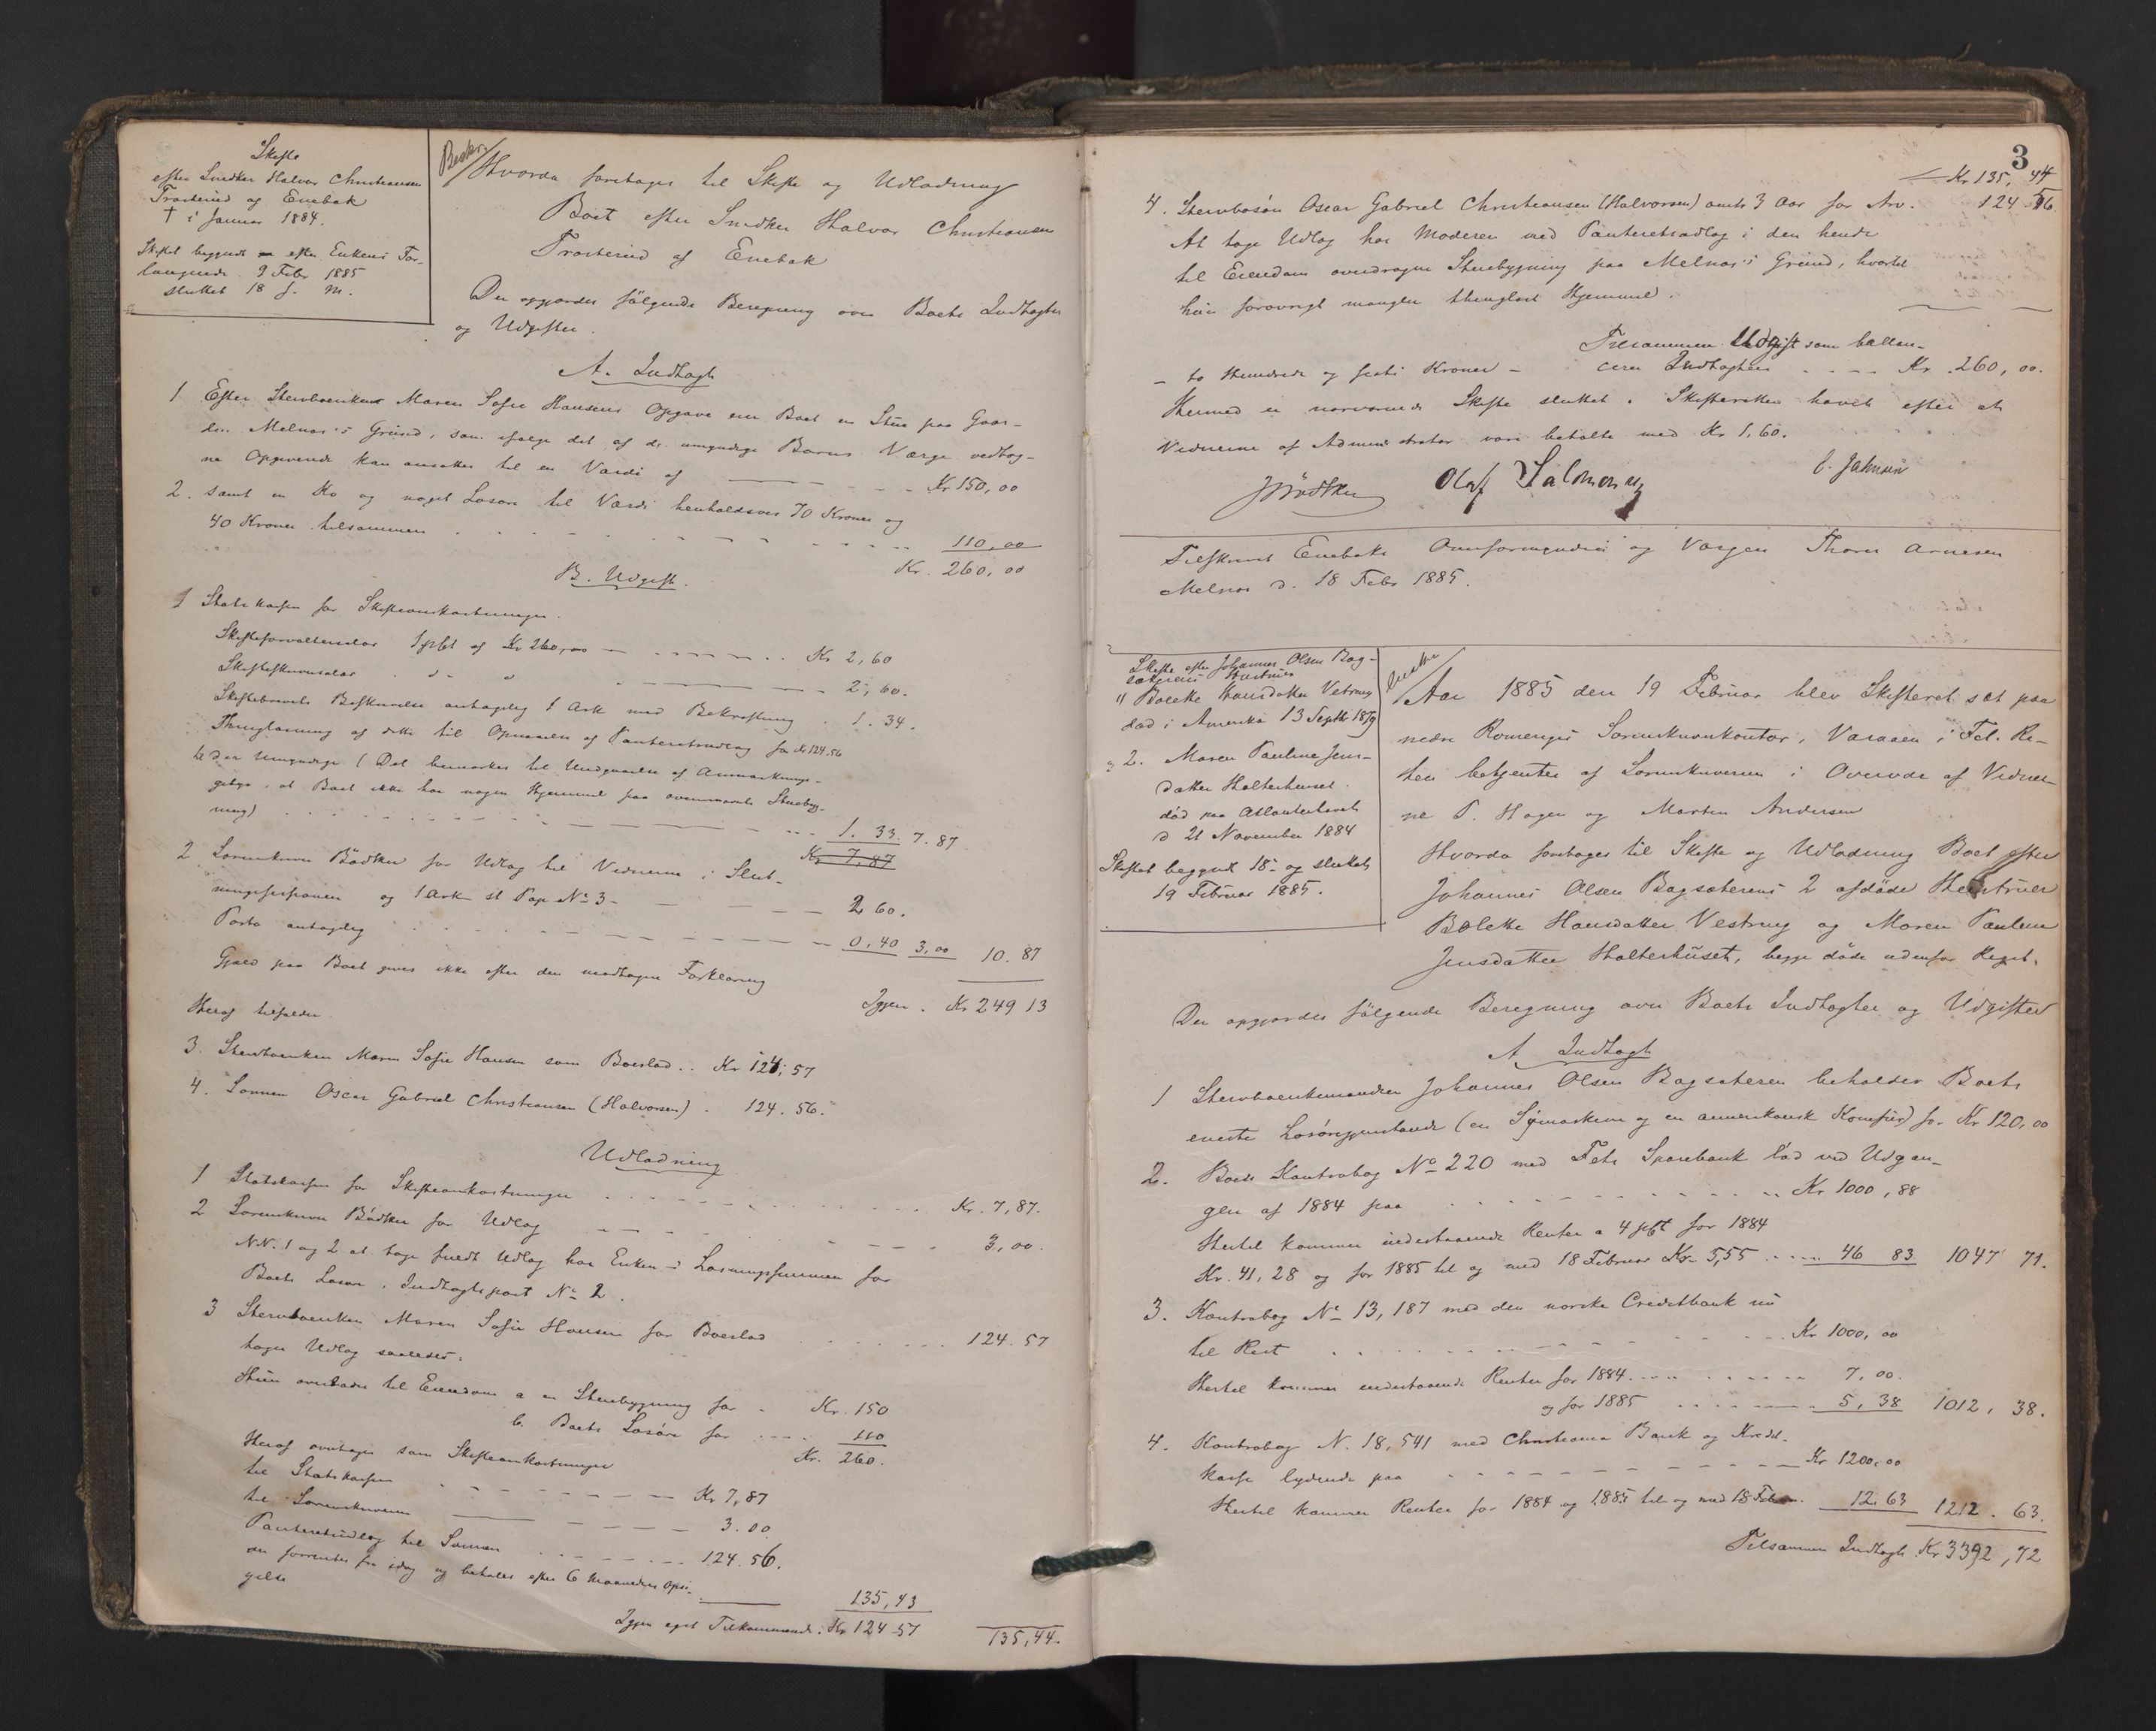 Skifte
efter Snedker Halvor Christiansen
Trosterud af Enebak
† i Januar 1884.
Skiftet begyndt efter Enkens For-
langende 9 Febr 1885
sluttet 18 s. M.
Beskr.
Hvorda foretages til Skifte og Udlodning
Boet efter Snedker Halvor Christiansen
Trosterud af Enebak
Der opgjordes følgende Beregning over Boets Indtægter
og Udgifter.
A. Indtægt
1 Efter Stervboenken Maren Sofie Hansens Opgave eier Boet en Stue paa Gaar-
den Melnæs's Grund, som ifølge det af den umyndige Barns Værge vedtag-
ne Opgivende kan ansættes til en Værdi af - - - Kr 150,00
2. samt en Ko og noget Løsøre til Værdi henholdsvis 70 Kroner og
40 Kroner tilsammen . . . . . 110,00
Kr. 260,00
B. Udgift.
1 Statskassen for Skifteomkostninger.
Skifteforvaltersalær 1 pCt af Kr 260,00 - - - Kr 2,60
Skifteskriversalær . „ - „ - - - 2,60.
Skiftebrevets Beskrivelse antagelig 1 Ark med Bekræftning . 1. 34.
Thinglæsning af dette til Opnaaelse af Panteretsudlæg for Kr 124,56
til den Umyndige (Det bemærkes til Undgaaelse af Anmærknings-
gebyr, at Boet ikke har nogen Hjemmel paa ovennævnte Stuebyg-
ning) . . . . . 1. 33. 7. 87
Kr 7,87
2 Sorenskriver Bödtker for Udlæg til Vidnerne i Slut-
ningssessionen og 1 Ark st Pap No 3 - - - 2 60.
Porto antagelig . . . . 0,40 3,00 10. 87
Gjæld paa Boet gives ikke efter den modtagne Forklaring
Igjen . Kr 249 13
Heraf tilfalder.
3. Stervboenken Maren Sofie Hansen som Boeslod . . Kr 124, 57
4. Sønnen Oscar Gabriel Christiansen (Halvorsen) . 124. 56.
Udlodning
1 Statskassen for Skifteomkostninger . . . . Kr. 7,87.
2 Sorenskriver Bödtker for Udlæg - - - 3,00.
N.N. 1 og 2 at tage fuldt Udlæg hos Enken i Løsningssummen for
Boets Løsøre, Indtægtspost No 2.
3 Stervboenken Maren Sofie Hansen for Boeslod . . . . 124. 57
tager Udlæg saaledes.
Hun overlades til Eiendom a en Stuebygning for - Kr. 150
b. Boets Løsøre for . . . 110
Kr. 260.
Heraf overtages som Skifteomkostninger
til Statskassen - - - Kr 7,87
til Sorenskriveren - - - 3.00
Panteretsudlæg til Sønnen . . . . 124. 56.
der forrentes fra idag og betales efter 6 Maaneders Opsi-
gelse
135,43
Igjen eget Tilkommende. Kr 124 57 135,44.
3
Kr 135, 44
4. Stervbosøn Oscar Gabriel Christiansen (Halvorsen) omtr 3 Aar for Arv. 124 56
At tage Udlæg hos Moderen med Panteretsudlæg i den hende
til Eiendom overdragne Stuebygning paa Melnæs's Grund, hvortil
hun forøvrigt mangler thinglæst Hjemmel.
Tilsammen Udgift som ballan-
- to Hundrede og sexti Kroner - cerer Indtægten . . . . Kr. 260,00.
Hermed er nærværende Skifte sluttet. Skifteretten hævet efter at
Vidnerne af Administrator vare betalte med Kr 1,60.
JBödtker Olaf Salmonsen C. Jahnsen
Tilskrevet Enebaks Overformynderi og Værgen Thorer Arnesen
Melnæs d. 18 Febr 1885.
Skifte efter Johannes Olsen Bag-
sæterens Hustruer
1) Boletke Hansdatter Vestreng
død i Amerika 13 Septbr 1879
2. Maren Pauline Jens-
datter Holterhuset.
død paa Atlanterhavet
d 21 November 1884
Skiftet begyndt 18- og sluttet
19 Februar 1885.
Aar 1885 den 19 Februar blev Skifteret sat paa
nedre Romeriges Sorenskriverkontor, Varaaen i Fet. Ret-
ten betjentes af Sorenskriveren i Overvær af Vidner-
ne P. Hagen og Morten Andersen
Hvorda foretages til Skifte og Udlodning Boet efter
Johannes Olsen Bagsæterens 2 afdøde Hustruer
Boletke Hansdatter Vestreng og Maren Pauline
Jensdatter Holterhuset, begge døde udenfor Riget.
Der opgjordes følgende Beregning over Boets Indtægter og Udgifter
A Indtægt
1 Stervboenkemanden Johannes Olsen Bagsæteren beholder Boets
eneste Løsøregjenstande (en Symaskine og en amerikansk Komfur) for Kr 120,00
2. Boets Kontrabog No 220 med Fets Sparebank lød ved Udgan-
gen af 1884 paa . . . . Kr 1000,88
Hertil kommer indestaaende Renter a 4 pCt for 1884
Kr. 41,28 og for 1885 til og med 18 Februar Kr. 5,55 . . . . 46 83 1047 71.
3. Kontrabog No 13,187 med den norske Creditbank nu
til Rest . . . . Kr 1000,00
Hertil kommer indestaaende Renter for 1884 . . . . 7,00.
og for 1885 . . . . 5,38 1012, 38.
4. Kontrabog N. 18,541 med Christiania Bank og Kredit-
kasse lydende paa - - - Kr 1200,00
Hertil kommer Renter for 1884 og 1885 til og med 18 Febr. 12 63 1212. 63.
Tilsammen Indtægt Kr 3392,72